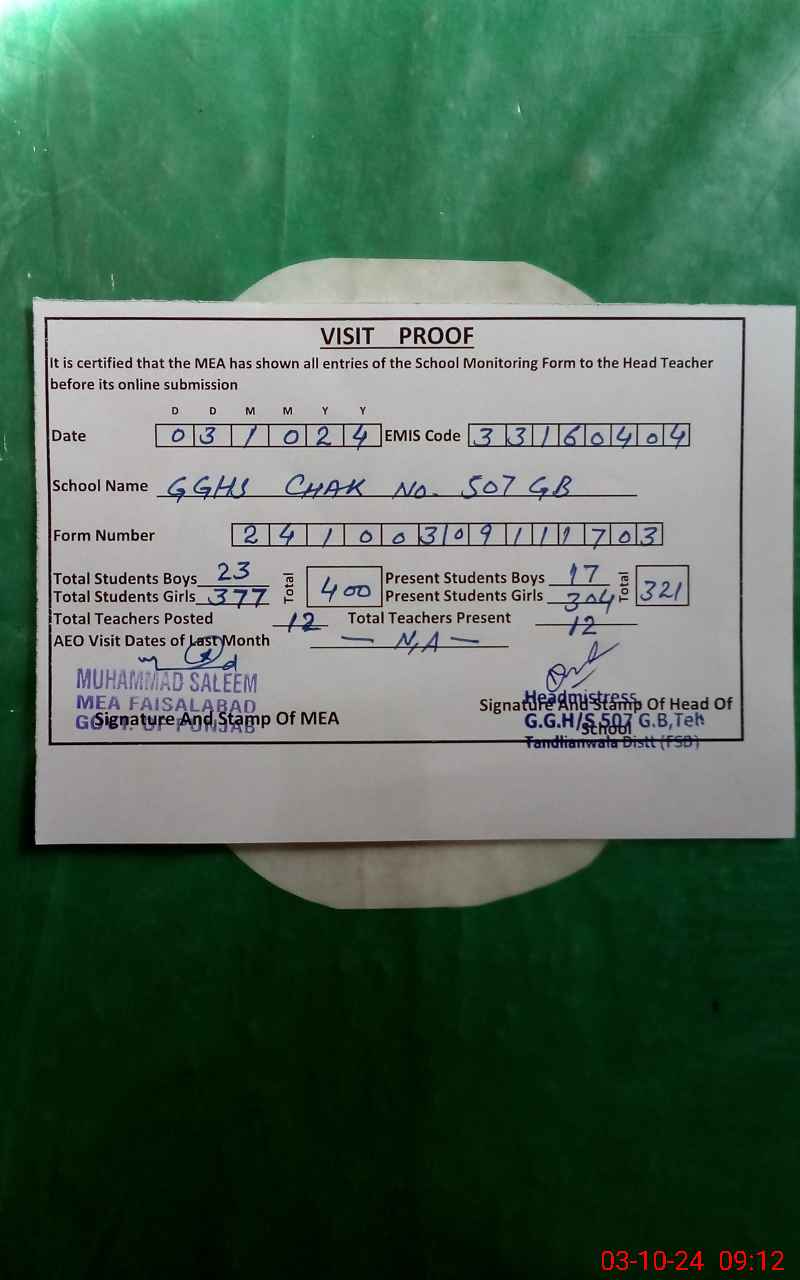 VISIT PROOF
It is certified that the MEA has shown all entries of the School Monitoring Form to the Head Teacher
before its online submission
D D M M Y Y
Date 0 3 1 0 2 4 EMIS Code 3 3 1 6 0 4 0 4
School Name GGHS CHAK No. 507 GB
Form Number 2 4 1 0 0 3 0 9 1 1 1 7 0 3
Total Students Boys 23 Total 400 Present Students Boys 17 Total 321
Total Students Girls 377 Present Students Girls 304
Total Teachers Posted 12 Total Teachers Present 12
AEO Visit Dates of Last Month — N,A —
MUHAMMAD SALEEM
MEA FAISALABAD
GOVT. OF PUNJAB
Signature And Stamp Of MEA
Headmistress
Signature And Stamp Of Head Of
G.G.H/S 507 G.B,Teh
School
Tandlianwala Distt (FSD)
03-10-24 09:12